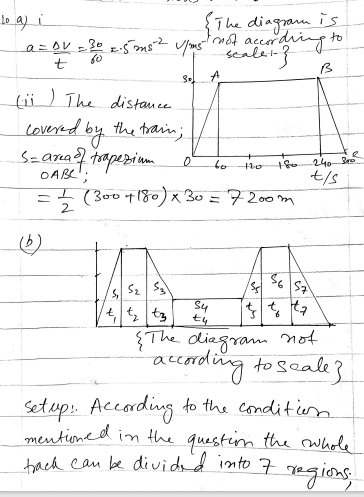 10 a) i
{The diagram is
not according to
scale:-}
a = ΔV/t = 30/60 = .5 ms⁻² V/ms⁻¹
30
A
B
(ii) The distance
covered by the train;
S = area of trapezium
OABC;
0 60 120 180 240 300 C
t/S
= 1/2 (300 + 180) × 30 = 7200m
(b)
S1 S2 S3 S4 S5 S6 S7
t1 t2 t3 t4 t5 t6 t7
{The diagram not
according to scale}
setup:. According to the condition
mentioned in the question the whole
track can be divided into 7 regions;